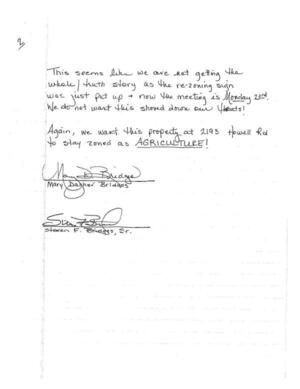 2)
This seems like we are not getting the
whole / truth story as the re-zoning sign
was just put up + now the meeting is Monday 23rd.
We do not want this shoved down our throats!
Again, we want this property at 2193 Howell Rd
to stay zoned as AGRICULTURE!
Mary D Bridges
Mary Dasher Bridges
Steven F. Bridges, Sr.